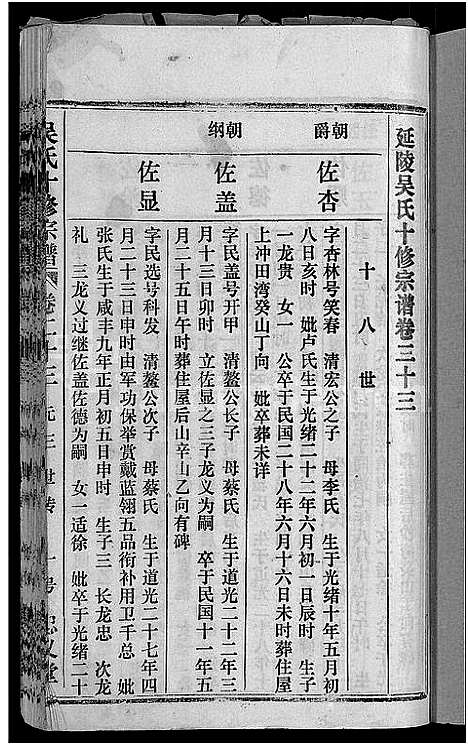 延陵吴氏十修宗谱卷三十三
十八世
朝爵
佐杏
字杏林号笑春 清宏公之子 母李氏 生于光绪十年五月初
八日亥时 妣卢氏生于光绪二十二年六月初一日辰时 生子
一龙贵 女一 公卒于民国二十八年六月十六日未时葬住屋
上冲田湾癸山丁向 妣卒葬未详
朝纲
佐盖
字民盖号开甲 清鳌公长子 母蔡氏 生于道光二十二年三
月十三日卯时 立佐显之三子龙义为嗣 卒于民国十一年五
月二十五日午时葬住屋后山辛山乙向有碑
佐显
字民选号科发 清鳌公次子 母蔡氏 生于道光二十七年四
月二十三日申时由军功保举赏戴蓝翎五品衔补用卫千总 妣
张氏生于咸丰九年正月初五日申时 生子三 长龙忠 次龙
礼 三龙义过继佐盖佐德为嗣 女一适徐 妣卒于光绪二十
吴氏十修宗谱 卷三十三 元三世转 一号 忠义堂